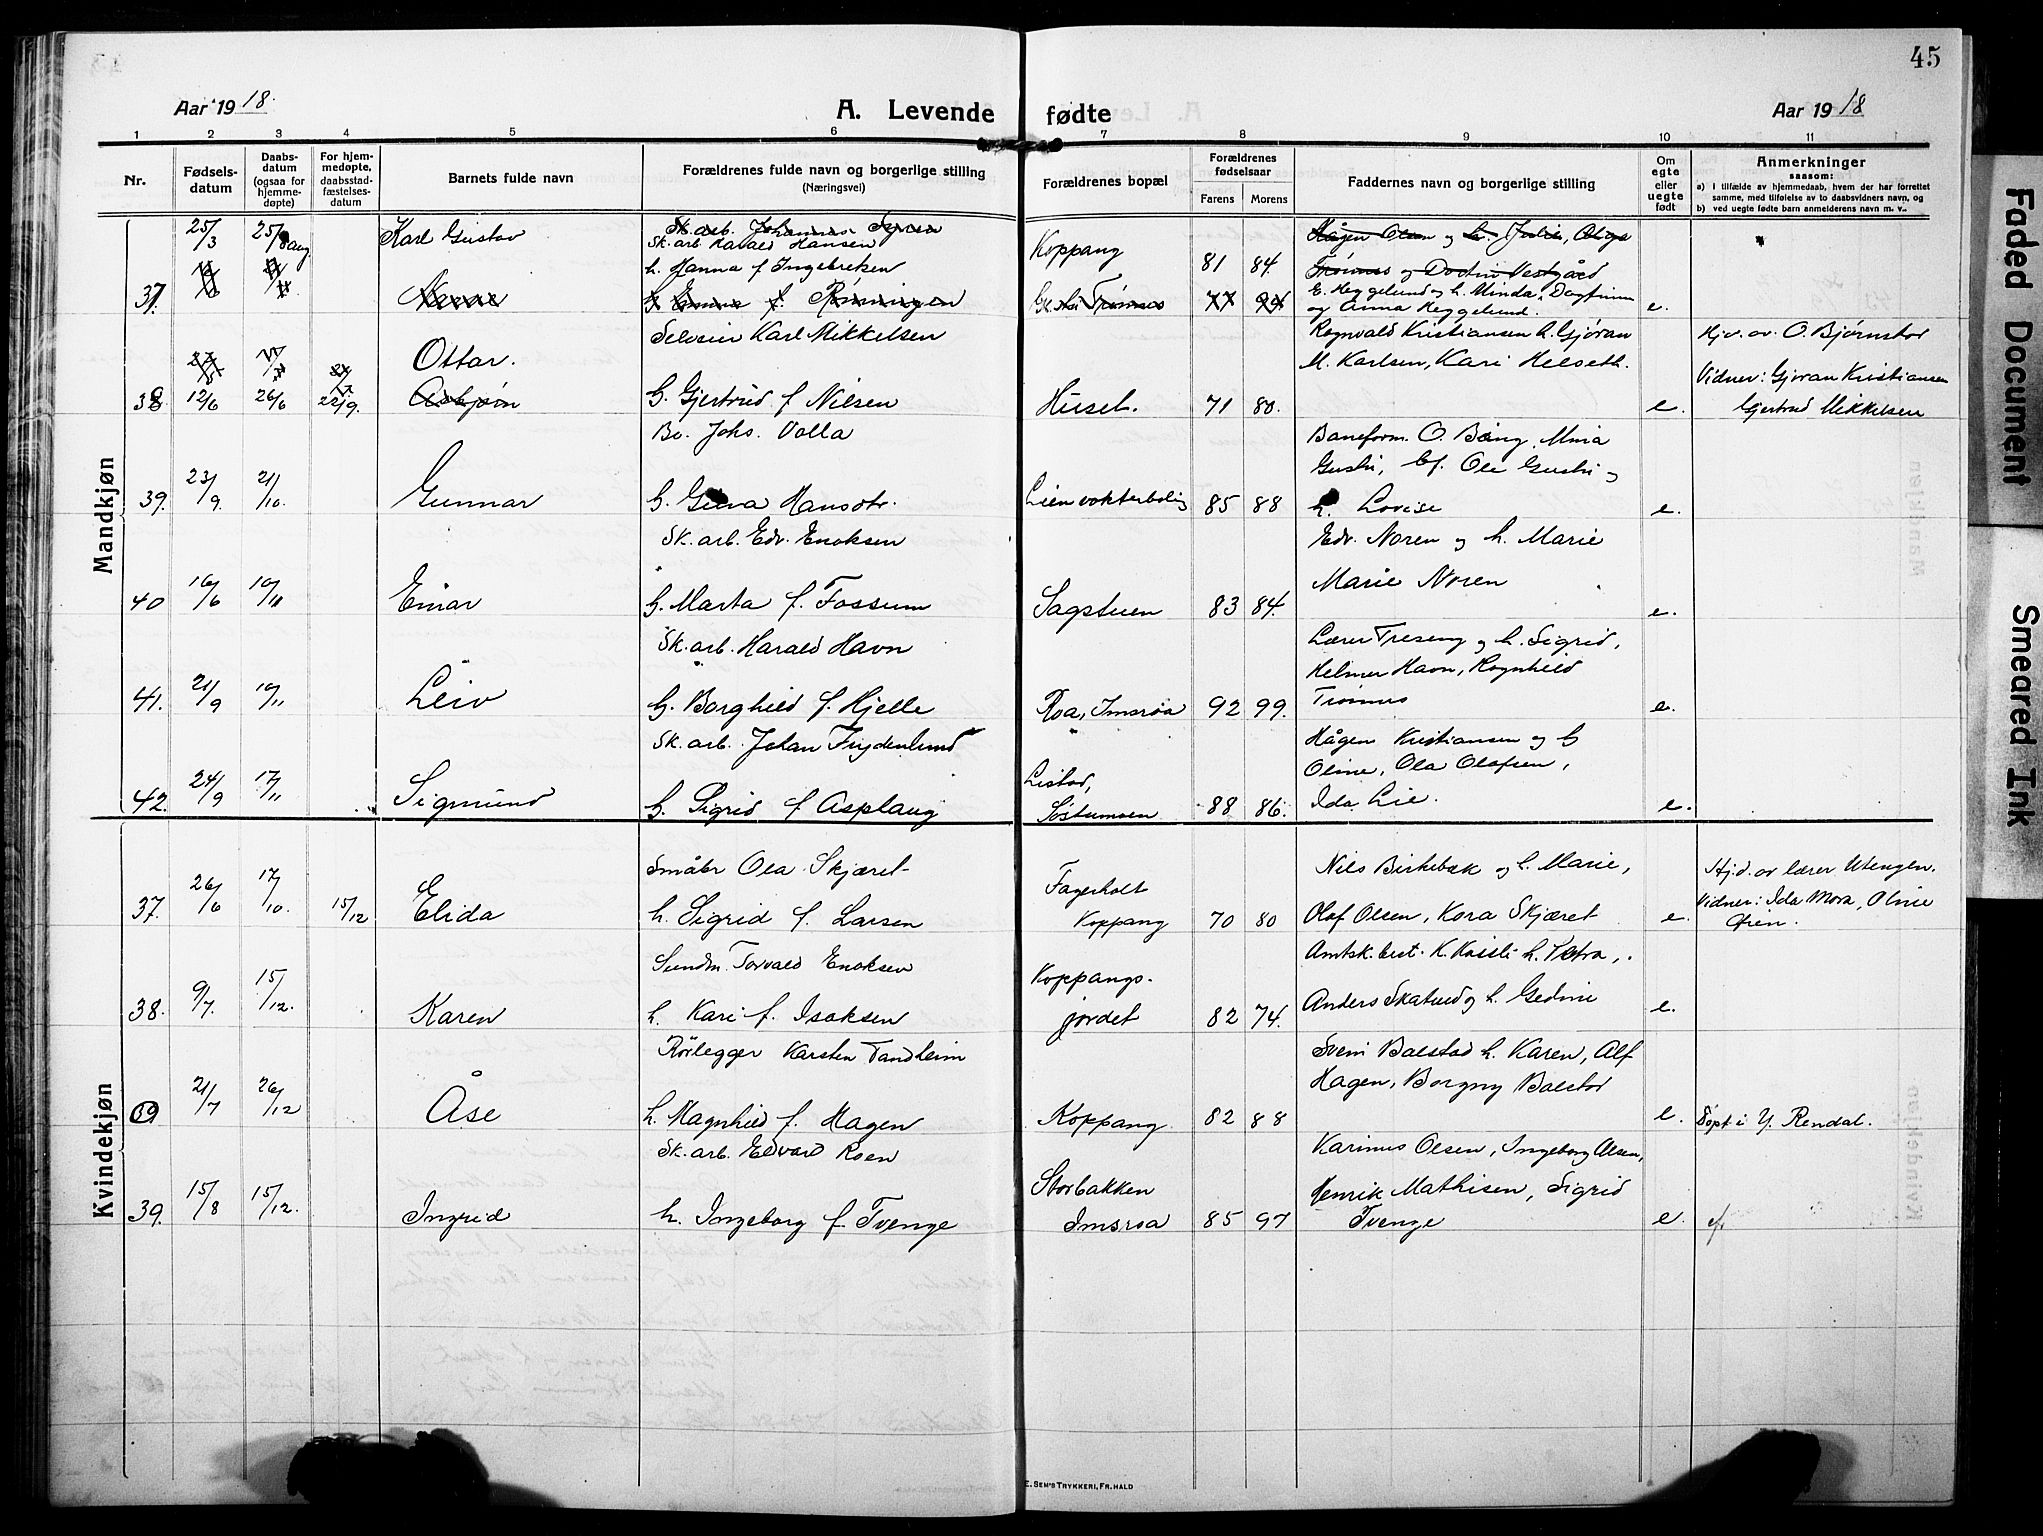 45
Aar 1918.
A. Levende fødte
Aar 1918
1 2 3 4 5 6 7 8 9 10 11
Nr.
Fødsels-
datum
Daabs-
datum
(ogsaa for
hjemme-
døpte)
For hjem-
medøpte,
daabsstad-
fæstelses-
datum
Barnets fulde navn
Forældrenes fulde navn og borgerlige stilling
(Næringsvei)
Forældrenes bopæl
Forældrenes
fødselsaar
Farens Morens
Faddernes navn og borgerlige stilling
Om
egte
eller
uegte
født
Anmerkninger
saasom:
a) i tilfælde av hjemmedaab, hvem der har forrettet
samme, med tilføielse av to daabsvidners navn, og
b) ved uegte fødte barn anmelderens navn m. v..
Mandkjøn
25/3 25/8 aug Karl Gustav
Sk. arb. Johannes
Sk. arb Harald Hansen
h. Hanna f Ingebretsen
Koppang 81 84.
Hågen Olsen og h. Julie,
Trønnes og Dortin Vestgård
E. Heggelund og h. Minda, Dagfinn
og Anna Heggelund.
37. f. Rønningen Trønnes 77 e.
Selveier Karl Mikkelsen
Ragnvald Kristiansen h. Gjøran
M. Karlsen, Kari Helseth.
Hjd. av. O. Bjørnstad
Vidner: Gjøran Kristiansen
Gjertrud Mikkelsen
Ottar.
38 12/6 26/6 22/9. Asbjørn
G. Gjertrud f Nilsen
Huset. 71 80. e.
Bv. Johs. Volla
Baneform. O. Bang, Mina
Gushi, Gf. Ole Gushi og
h. Lovise
39. 23/9. 21/10. Gunnar
G. Gina Hansdtr.
Lien vokterbolig 85 88 e.
Sk. arb. Edv. Enoksen
Edv. Noren og h. Marie
Marie Noren
40 16/6 10/11 Einar
G. Marta f. Fossum
Sagstuen 83 84. e.
Sk. arb. Harald Havn
Lærer Treseng og h. Sigrid,
Helmer Havn, Ragnhild
Trønnes
41. 21/9 10/11 Leiv
G. Borghild f. Hjelle
Roa, Imsroa 92 99. e.
Sk. arb. Johan Frydenlund
Hågen Kristiansen og G
Oline, Ola Olafsen,
Ida Lie.
42. 24/9 17/11 Sigmund
G. Sigrid f Asplaug
Listad,
Søstumoen 88 86. e.
Kvindekjøn
Småbr Ola Skjæret
Nils Birkebæk og h. Marie,
Olaf Olsen, Kora Skjæret
Hj.d. av lærer Utengen.
Vidner: Ida Mora, Oline
Øien.
37. 26/6 17/10. 15/12 Elida
h. Sigrid f. Larsen
Fagerholt
Koppang 70 80 e.
Sundm. Torvald Enoksen
Amtsk. best. K. Kåsli h. Petra,
Anders Skatud og h. Gedine
38. 9/7. 15/12. Karen
h. Kari f. Isaksen
Koppangs-
jordet 82 74. e.
Rørlegger Karsten Tandheim
Svein Balstad h. Karen, Alf
Hagen, Borgny Balstad
39 21/7 26/12 Åse
h. Magnhild f. Hagen
Koppang 82 88 e. Døpt i Y. Rendal.
Sk. arb. Edvard Roen
Karinus Olsen, Ingeborg Olsen,
Henrik Mathisen, Sigrid
Tvenge
39. 15/8 15/12. Ingrid
h. Ingeborg f. Tvenge
Storbakken
Imsroa 85 97 e.
E. SEM'S TRYKKERI, FR.HALD
Faded Document
Smeared Ink